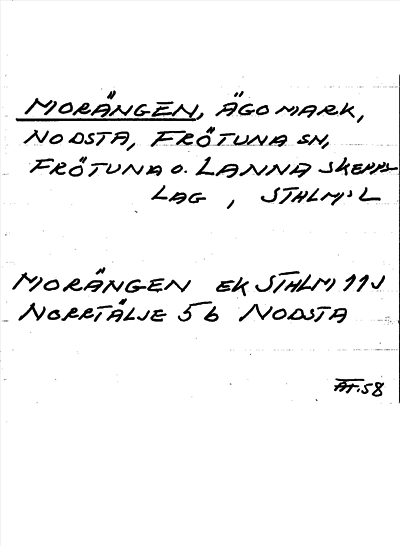 MORÄNGEN, ÄGOMARK,
NODSTA, FRÖTUNA SN,
FRÖTUNA O. LANNA SKEPPS
LAG, STHLM'S L
MORÄNGEN EK STHLM 11J
NORRTÄLJE 5 b NODSTA